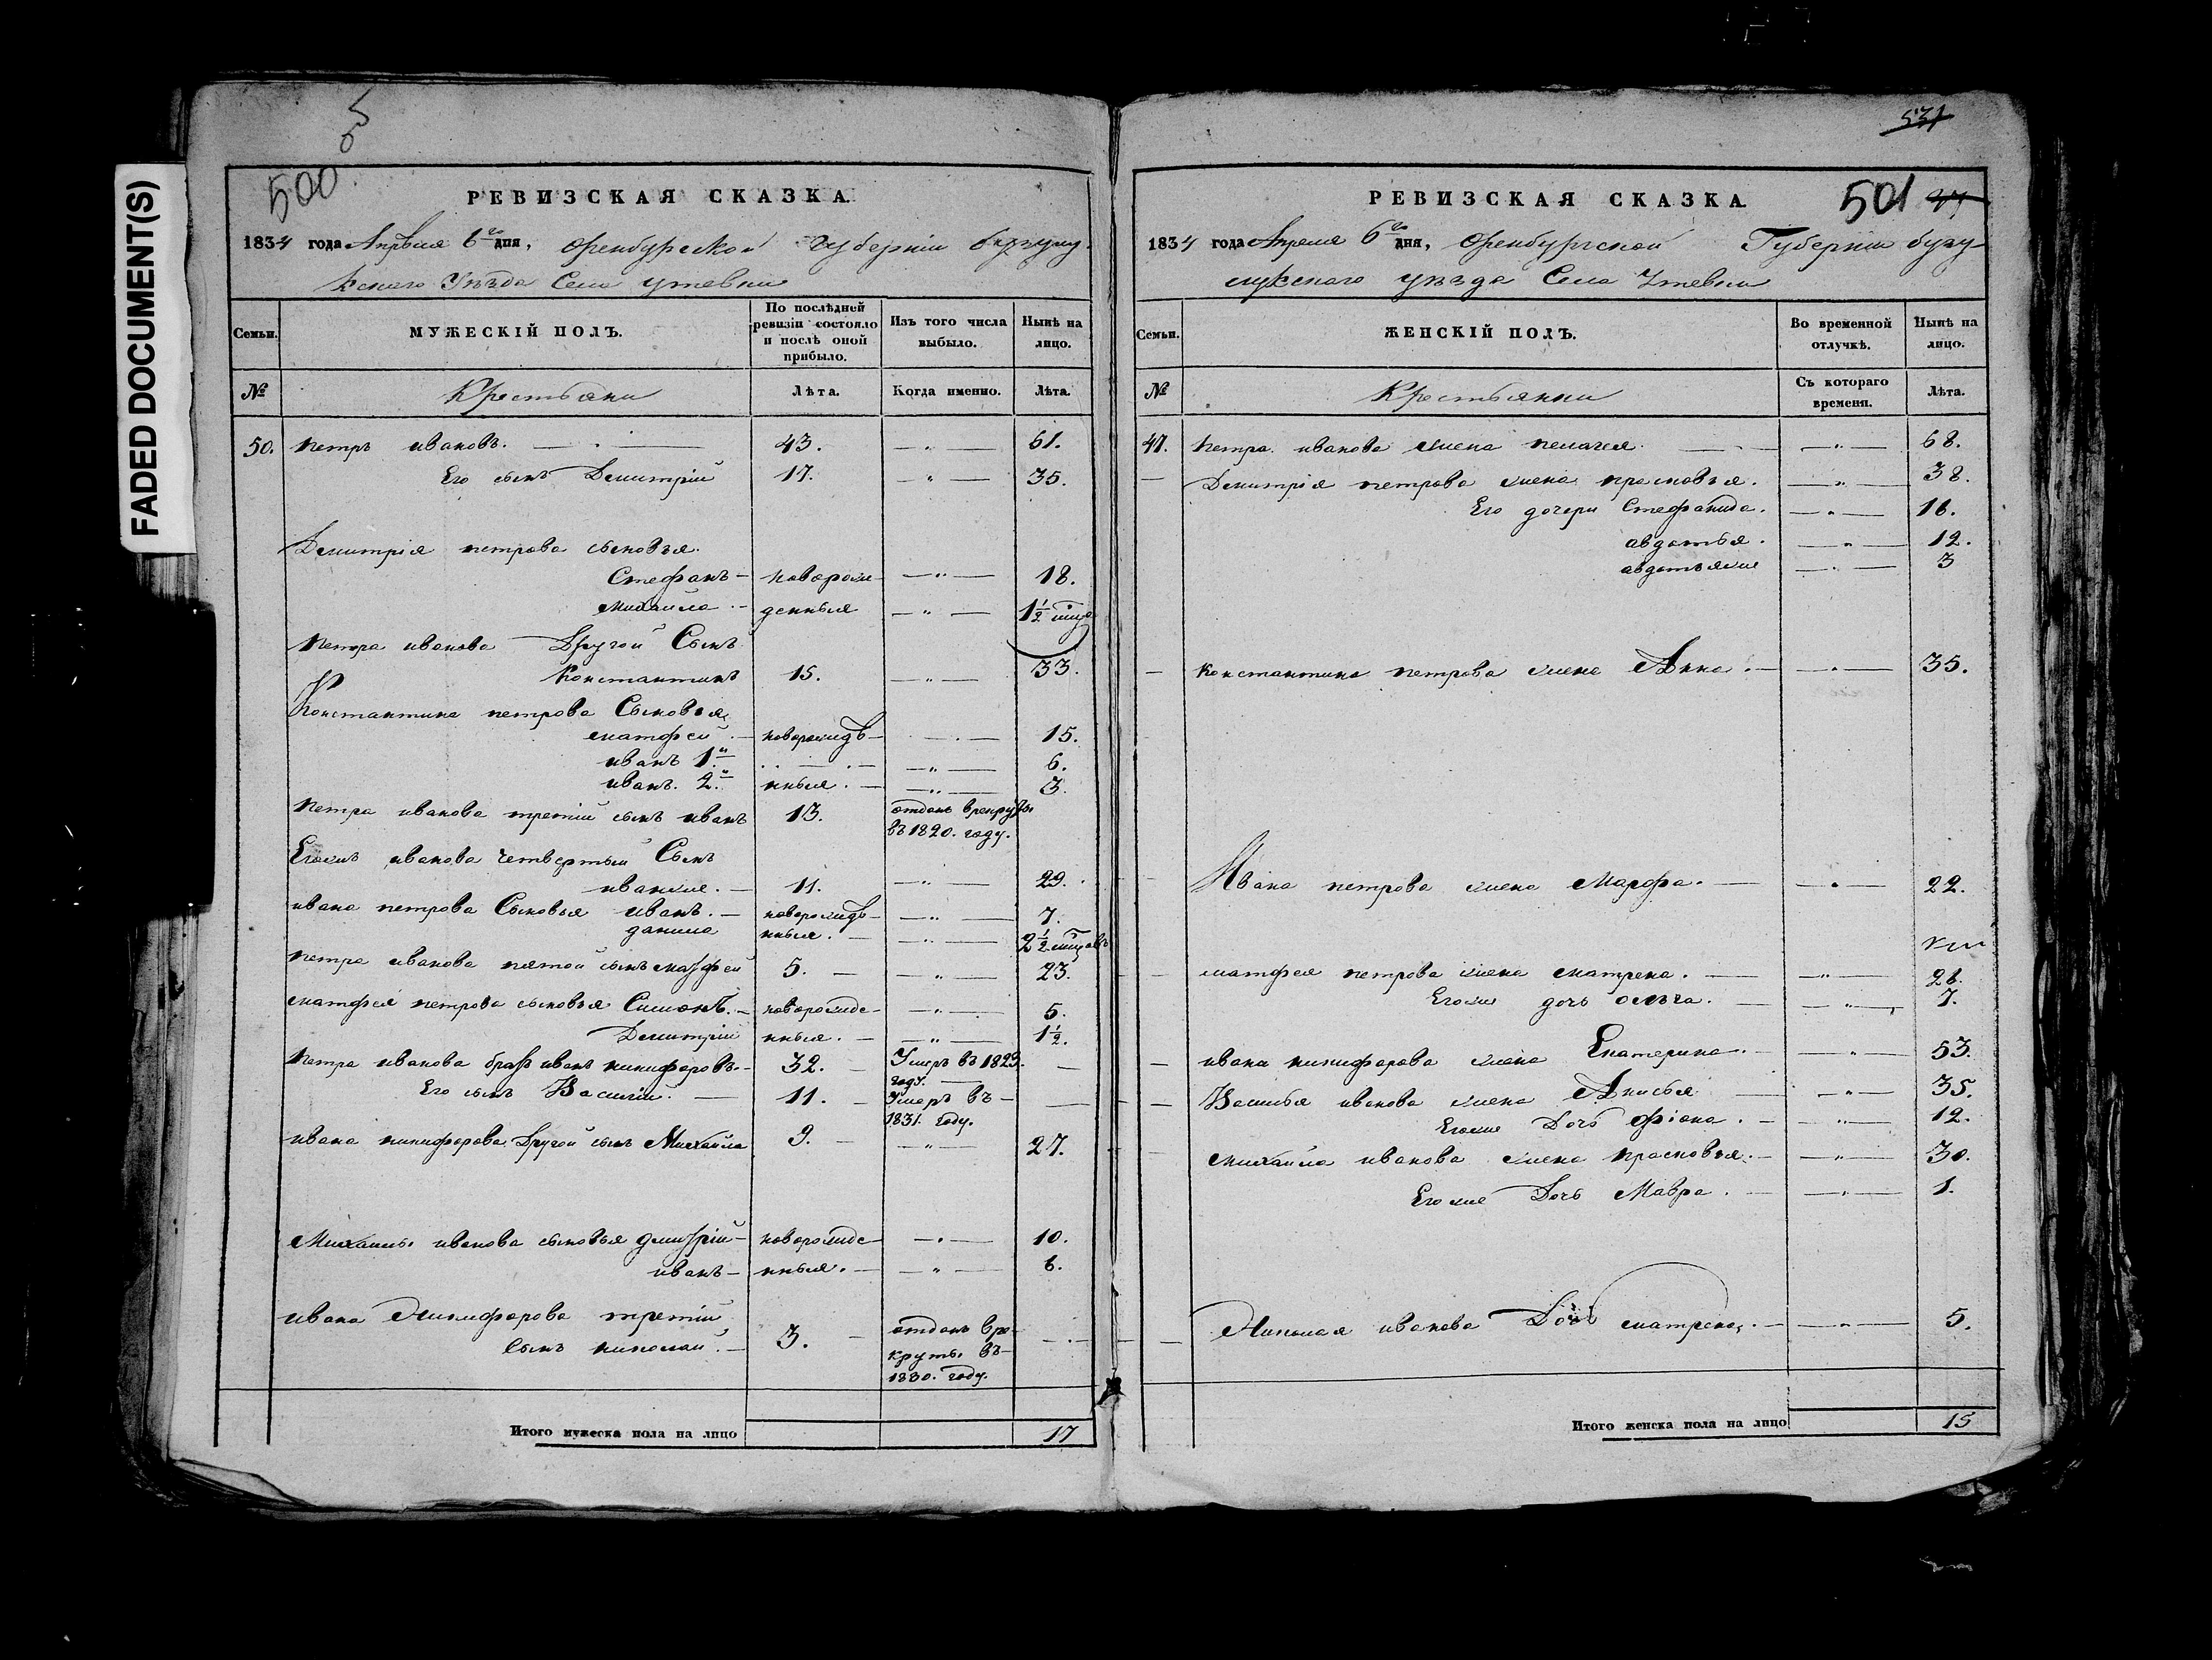 FADED DOCUMENT(S)
5
500
РЕВИЗСКАЯ СКАЗКА.
1834 года Апреля 6го дня, Оренбургской губерніи бузулу-
кскаго Уѣзда Села утевки
Семьи.
МУЖЕСКІЙ ПОЛЪ.
По послѣдней ревизіи состояло и послѣ оной прибыло.
Изъ того числа выбыло.
Нынѣ на лицо.
№
Крестьяни
Лѣта.
Когда именно.
Лѣта.
50. петръ ивановъ. 43. — „ — 61.
Его сынъ Демитрій 17. — „ — 35.
Демитрія петрова сыновья.
Стефанъ — новорож- — „ — 18.
михайла — денныя — „ — 1½
петра иванова Другой Сынъ
Константинъ 15. — „ — 33.
Константина петрова Сыновья,
матфей — новорождѣ- — „ — 15.
иванъ 1й — „ — 6.
иванъ. 2й нныя. — „ — 3.
петра иванова третій сынъ иванъ 13. отданъ врекруты
въ 1820. году.
Егожъ иванова четвертый Сынъ
иванже. — 11. — „ — 29.
ивана петрова Сыновья иванъ. — новорождѣ- — „ — 7.
данила нныя. — „ — 2½
петра иванова пятой сынъ матфей 5. — „ — 23.
матфея петрова сыновья Симонъ. — новорожде- — „ — 5.
Демитрій нныя. — „ — 1½.
петра иванова братъ иванъ никифоровъ. — 32. — Умеръ въ 1823.
году. —
Его сынъ Василій. — 11. — Умеръ въ —
1831. году.
ивана никифорова Другой сынъ Михайла 9. — „ — 27.
Михайлы иванова сыновья дмитрій — новорожде- — „ — 10.
иванъ — нныя. — „ — 6.
ивана Никифорова третій
сынъ николай. — 3. — отданъ вре-
круты. въ —
1830. году.
Итого мужеска пола на лицо 17
531
501
РЕВИЗСКАЯ СКАЗКА.
1834 года Апреля 6го дня, Оренбургской Губерніи бузу-
лукскаго уѣзда Села Утевки
Семьи.
ЖЕНСКІЙ ПОЛЪ.
Во временной отлучкѣ.
Нынѣ на лицо.
№
Крестьянки
Съ котораго времени.
Лѣта.
петра иванова жена пелагея. — „ — 68.
— Демитрія петрова жена прасковья. — „ — 38.
Его дочери Стефанида. — „ — 16.
авдотья. — „ — 12.
авдотьяже — „ — 3
— константина петрова жена Анна. — „ — 35.
Ивана петрова жена Марфа. — „ — 22.
— матфея петрова жена матрена. — „ — 26.
Егоже дочь олъга. — „ — 7.
— ивана никифорова жена Екатерина. — „ — 53.
— Василья иванова жена Анисья — „ — 35.
Егоже Дочь фіона. — „ — 12.
— михайла иванова жена прасковья. — „ — 30.
Егоже Дочь Мавра. — „ — 1.
— Николая иванова Дочь матрена, — „ — 5.
Итого женска пола на лицо 15